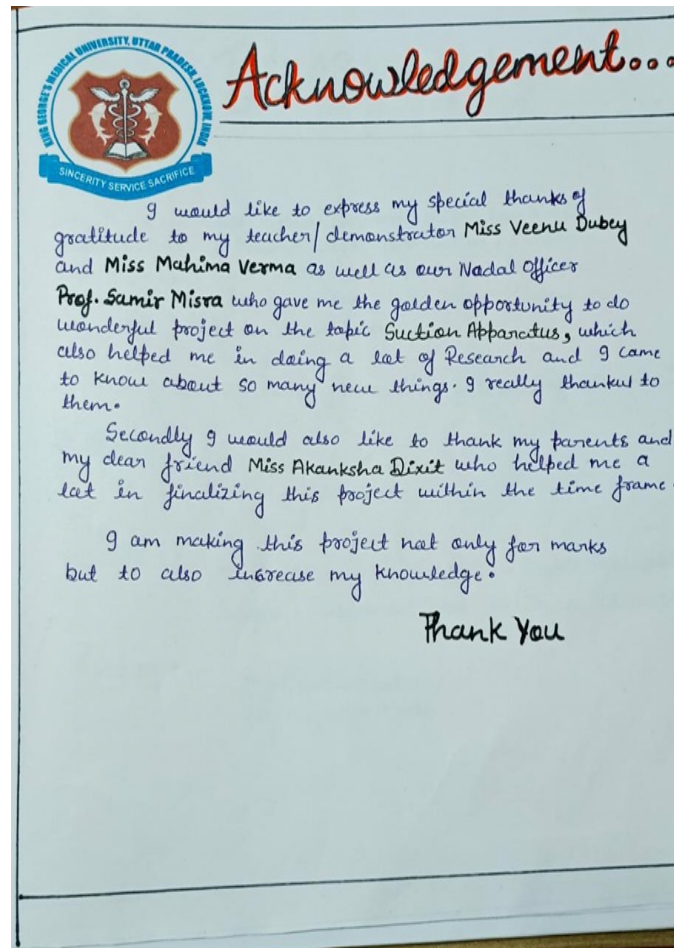 Acknowledgement...
KING GEORGE'S MEDICAL UNIVERSITY, UTTAR PRADESH, LUCKNOW, INDIA
SINCERITY SERVICE SACRIFICE
I would like to express my special thanks of
gratitude to my teacher/demonstrator Miss Veenu Dubey
and Miss Mahima Verma as well as our Nodal Officer
Prof. Samir Misra who gave me the golden opportunity to do
wonderful project on the topic Suction Apparatus, which
also helped me in doing a lot of Research and I came
to know about so many new things. I really thankul to
them.
Secondly I would also like to thank my parents and
my dear friend Miss Akanksha Dixit who helped me a
lot in finalizing this project within the time frame.
I am making this project not only for marks
but to also increase my knowledge.
Thank You